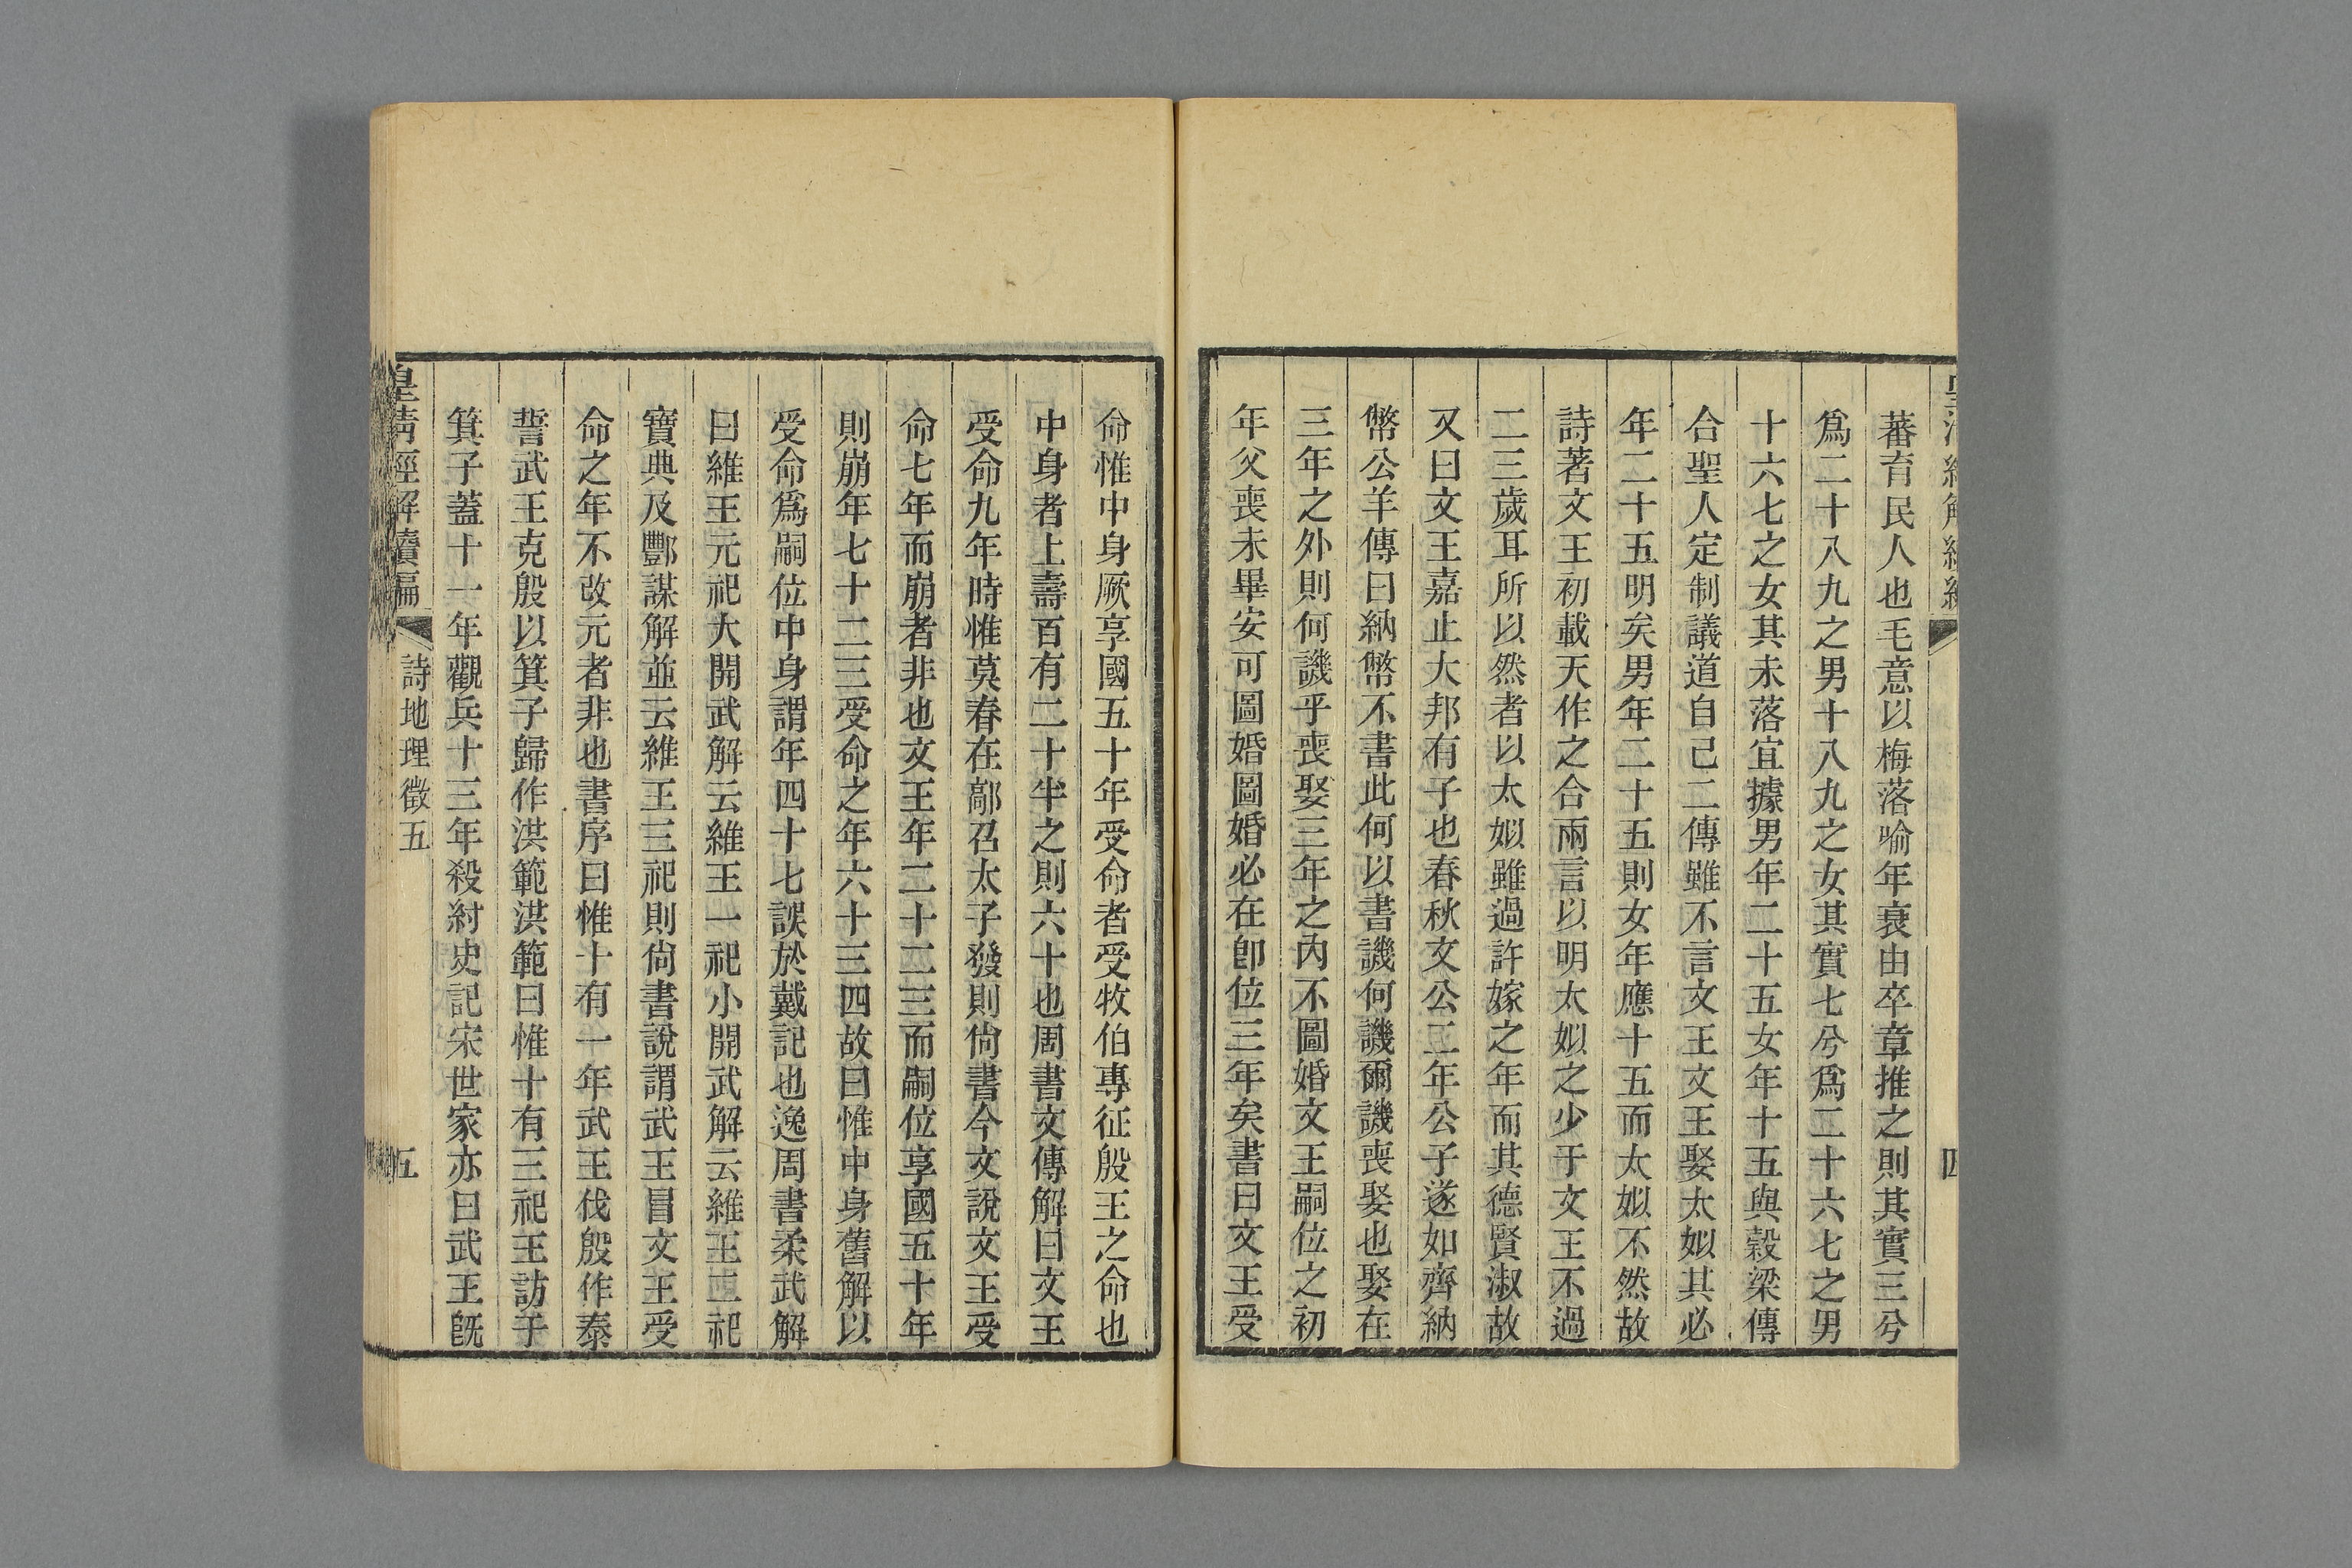 蕃育民人也毛意以梅落喻年衰由卒章推之則其實三兮
爲二十八九之男十八九之女其實七兮爲二十六七之男
十六七之女其未落宜據男年二十五女年十五與穀梁傳
合聖人定制議道自己二傳雖不言文王文王娶太姒其必
年二十五明矣男年二十五則女年應十五而太姒不然故
詩著文王初載天作之合兩言以明太姒之少于文王不過
二三歲耳所以然者以太姒雖過許嫁之年而其德賢淑故
又曰文王嘉止大邦有子也春秋文公二年公子遂如齊納
幣公羊傳曰納幣不書此何以書譏何譏爾譏喪娶也娶在
三年之外則何譏乎喪娶三年之內不圖婚文王嗣位之初
年父喪未畢安可圖婚圖婚必在卽位三年矣書曰文王受
命惟中身厥享國五十年受命者受牧伯專征殷王之命也
中身者上壽百有二十半之則六十也周書文傳解曰文王
受命九年時惟莫春在鄗召太子發則尙書今文說文王受
命七年而崩者非也文王年二十二三而嗣位享國五十年
則崩年七十二三受命之年六十三四故曰惟中身舊解以
受命爲嗣位中身謂年四十七誤於戴記也逸周書柔武解
曰維王元祀大開武解云維王一祀小開武解云維王二祀
寶典及酆謀解並云維王三祀則尙書說謂武王冒文王受
命之年不改元者非也書序曰惟十有一年武王伐殷作泰
誓武王克殷以箕子歸作洪範洪範曰惟十有三祀王訪于
箕子蓋十一年觀兵十三年殺紂史記宋世家亦曰武王旣
皇淸經解續編
詩地理徵五
五